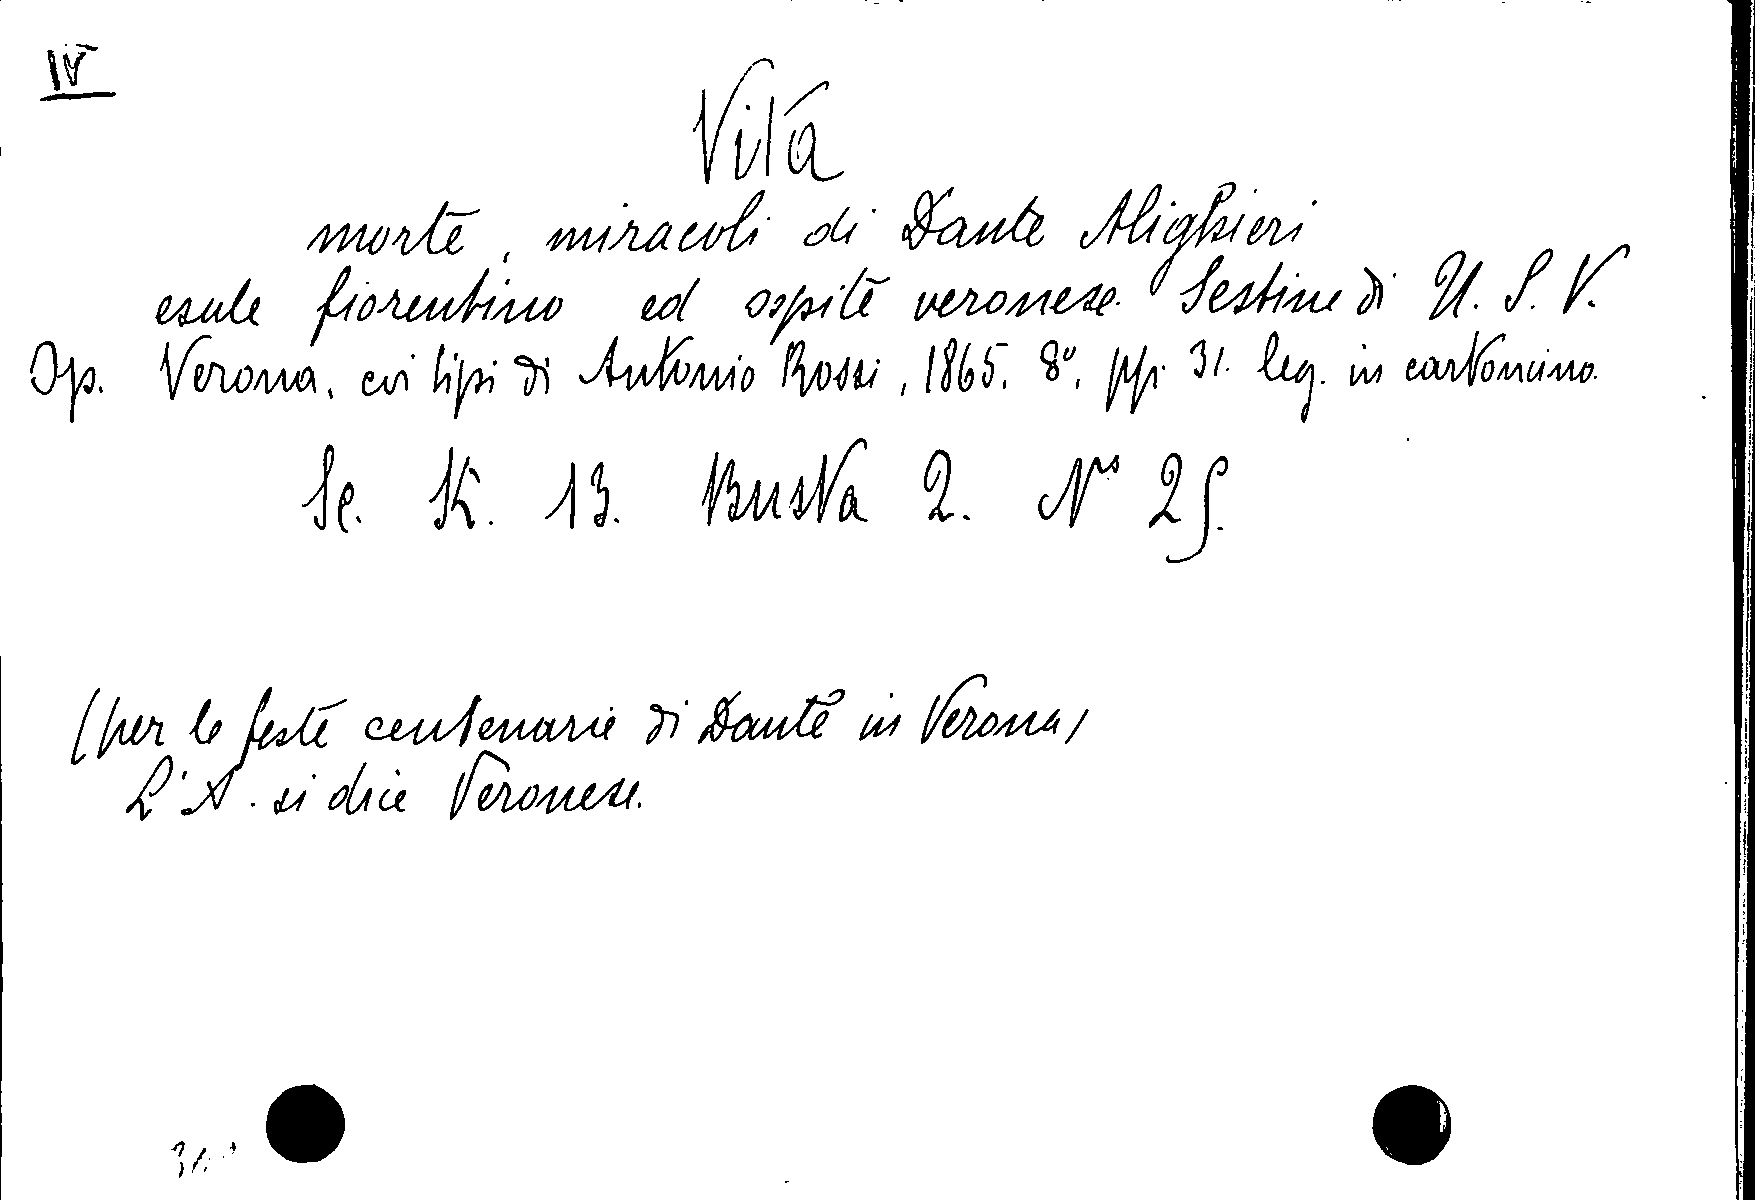 IV
Vita
morte, miracoli di Dante Alighieri
esule fiorentino ed ospite veronese. Sestine di U. S. V.
Op. Verona, coi tipi di Antonio Rossi, 1865. 8º, pp. 31. leg. in cartoncino.
Sc. K. 13. Busta 2. Nº 25.
(per le feste centenarie di Dante in Verona)
L'A. si dice Veronese.